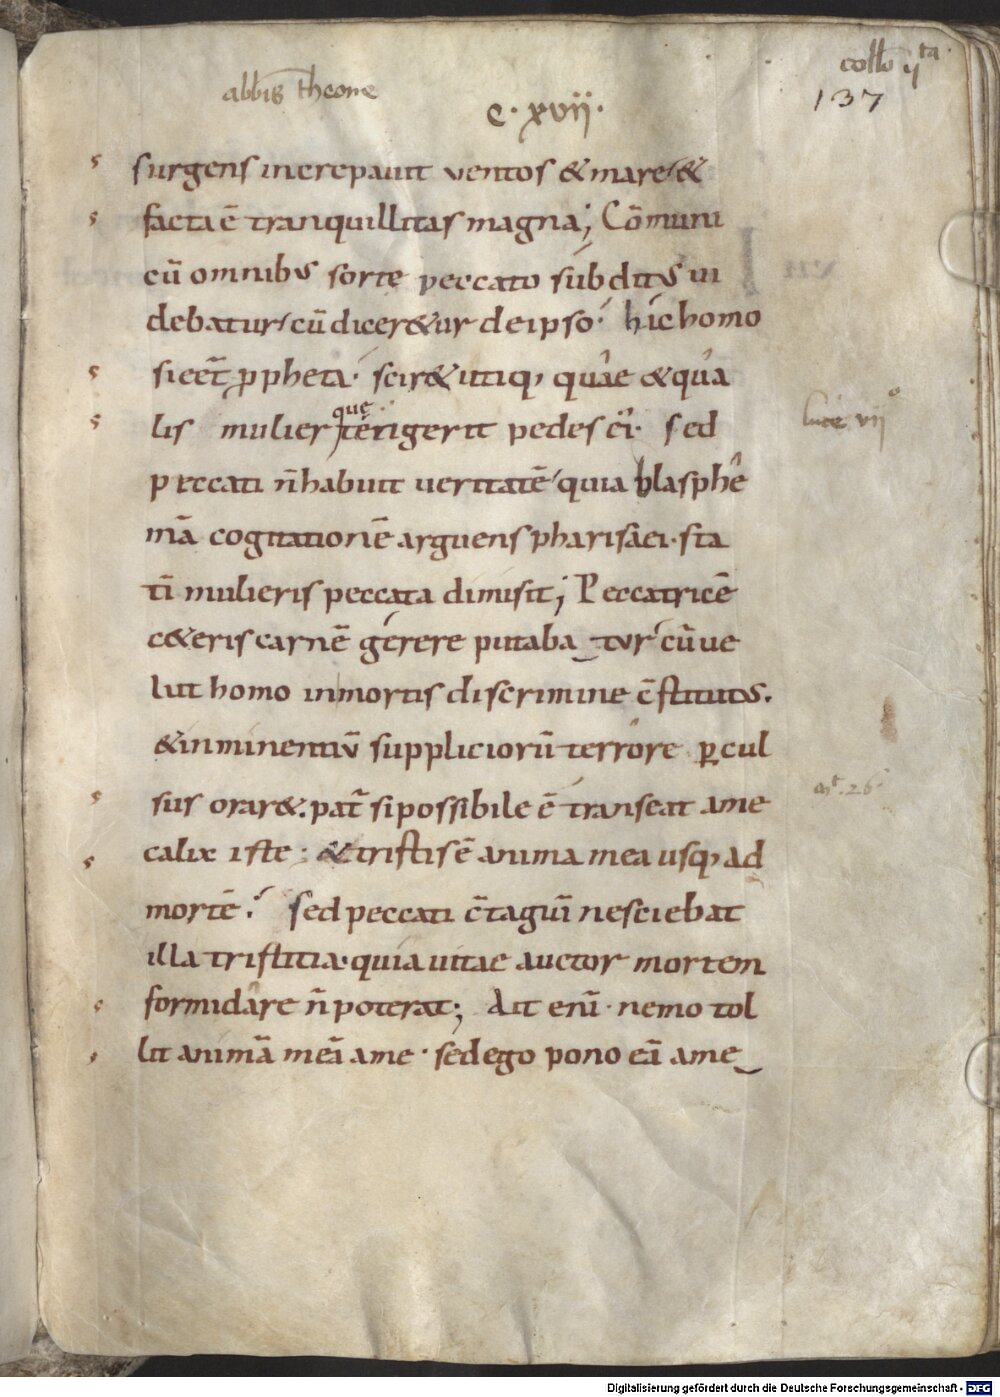 abbis theone
collō ii^ta
137
c·xvii·
surgens increpauit ventos & mare & 
facta ē tranquillitas magna; Cōmuni
cū omnibus sorte peccato subditus ui
debatur cū dicer&ur de ipso· hic homo
si eēt ꝓpheta· scir& utiq; quae & qua
lis mulier que tetigerit pedes ei· sed
peccati n̄ habuit ueritatē quia blasphe
mā cogitationē arguens pharisaei· sta
tī mulieris peccata dimisit; Peccatricē
c&eris carnē gerere putaba_tur cū ue
lut homo in mortis discrimine c̄stitutus.
& inminentiū suppliciorū terrore ꝑcul
sus orar&. pat̄ si possibile ē transeat ame
calix iste : & tristis ē anima mea usq; ad
mortē· sed peccati c̄tagiū nesciebat
illa tristitia· quia uitae auctor mortem
formidare n̄ poterat; Ait enī· nemo tol
lit animā meā ame· sed ego pono eā ame
luce vii°
mt. 26
Digitalisierung gefördert durch die Deutsche Forschungsgemeinschaft - DFG